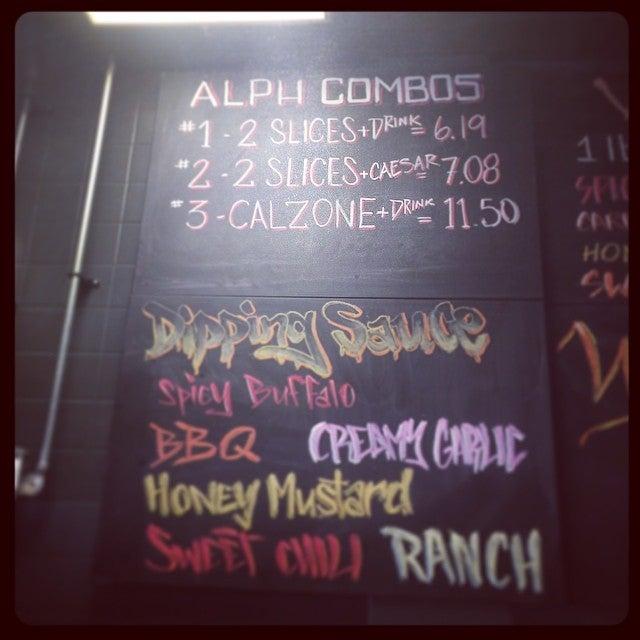 ALPH COMBOS
#1 - 2 SLICES + DRINK = 6.19
#2 - 2 SLICES + CAESAR = 7.08
#3 - CALZONE + DRINK = 11.50
Dipping Sauce
Spicy Buffalo
BBQ CREAMY GARLIC
HONEY MUSTARD
SWEET CHILI RANCH